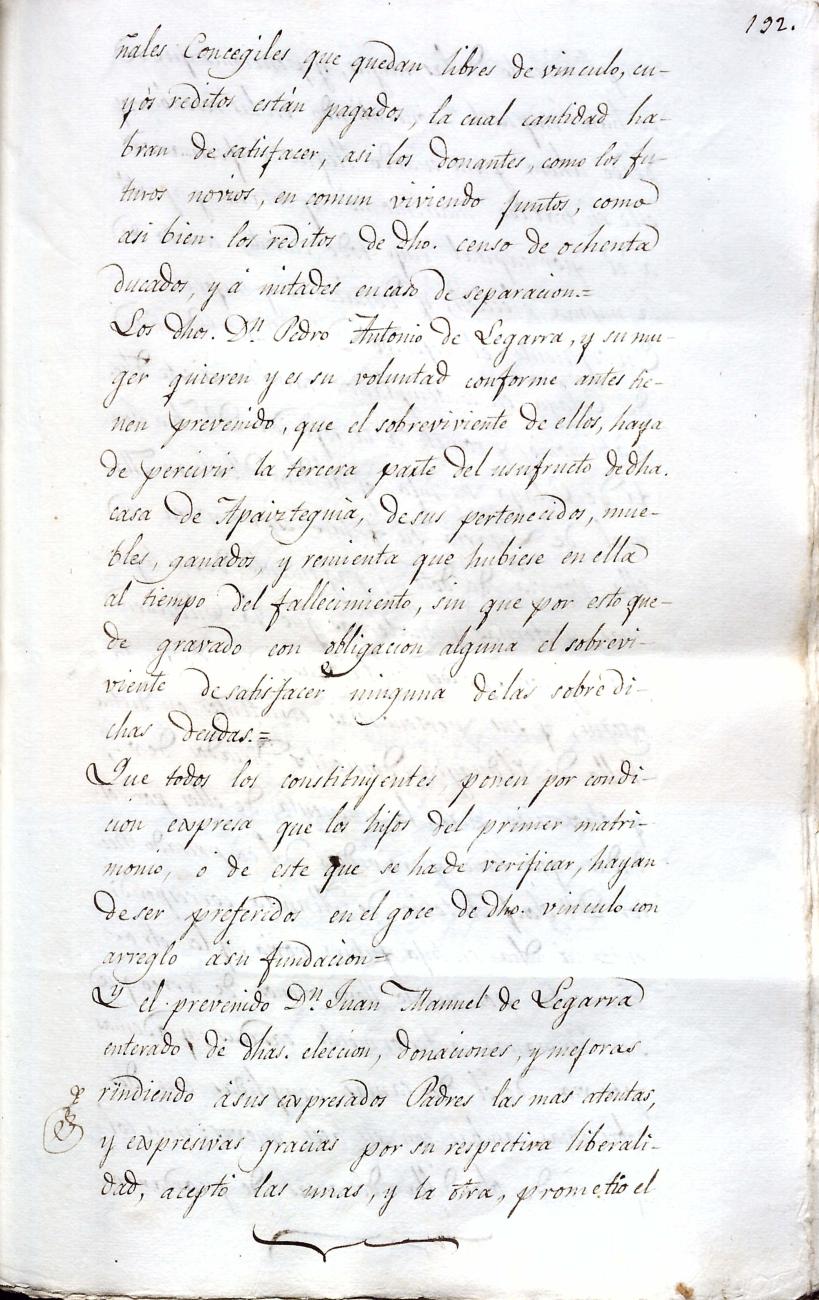 192.
ñales Concegiles que quedan libres de vinculo, cu-
yos reditos están pagados, la cual cantidad ha-
bran de satisfacer, asi los donantes, como los fu-
turos novios, en comun viviendo juntos, como
asi bien los reditos de dho. censo de ochenta
ducados, y á mitades en caso de separacion.=
Los dhos. Dn. Pedro Antonio de Legarra, y su mu-
ger quieren y es su voluntad conforme antes tie-
nen prevenido, que el sobreviviente de ellos, haya
de percivir la tercera parte del usufructo de dha.
casa de Apaizteguia, de sus pertenecidos, mue-
bles, ganados, y remienta que hubiese en ella
al tiempo del fallecimiento, sin que por esto que-
de gravado con obligacion alguna el sobrevi-
viente de satisfacer ninguna de las sobre di-
chas deudas.=
Que todos los constituyentes ponen por condi-
cion expresa que los hijos del primer matri-
monio, ó de este que se ha de verificar, hayan
de ser preferidos en el goce de dho. vinculo con
arreglo á su fundacion=
Y el prevenido Dn. Juan Manuel de Legarra
enterado de dhas. eleccion, donaciones, y mejoras
rindiendo á sus expresados Padres las mas atentas,
y expresivas gracias por su respectiva liberali-
dad, aceptó las unas, y la otra, prometio el